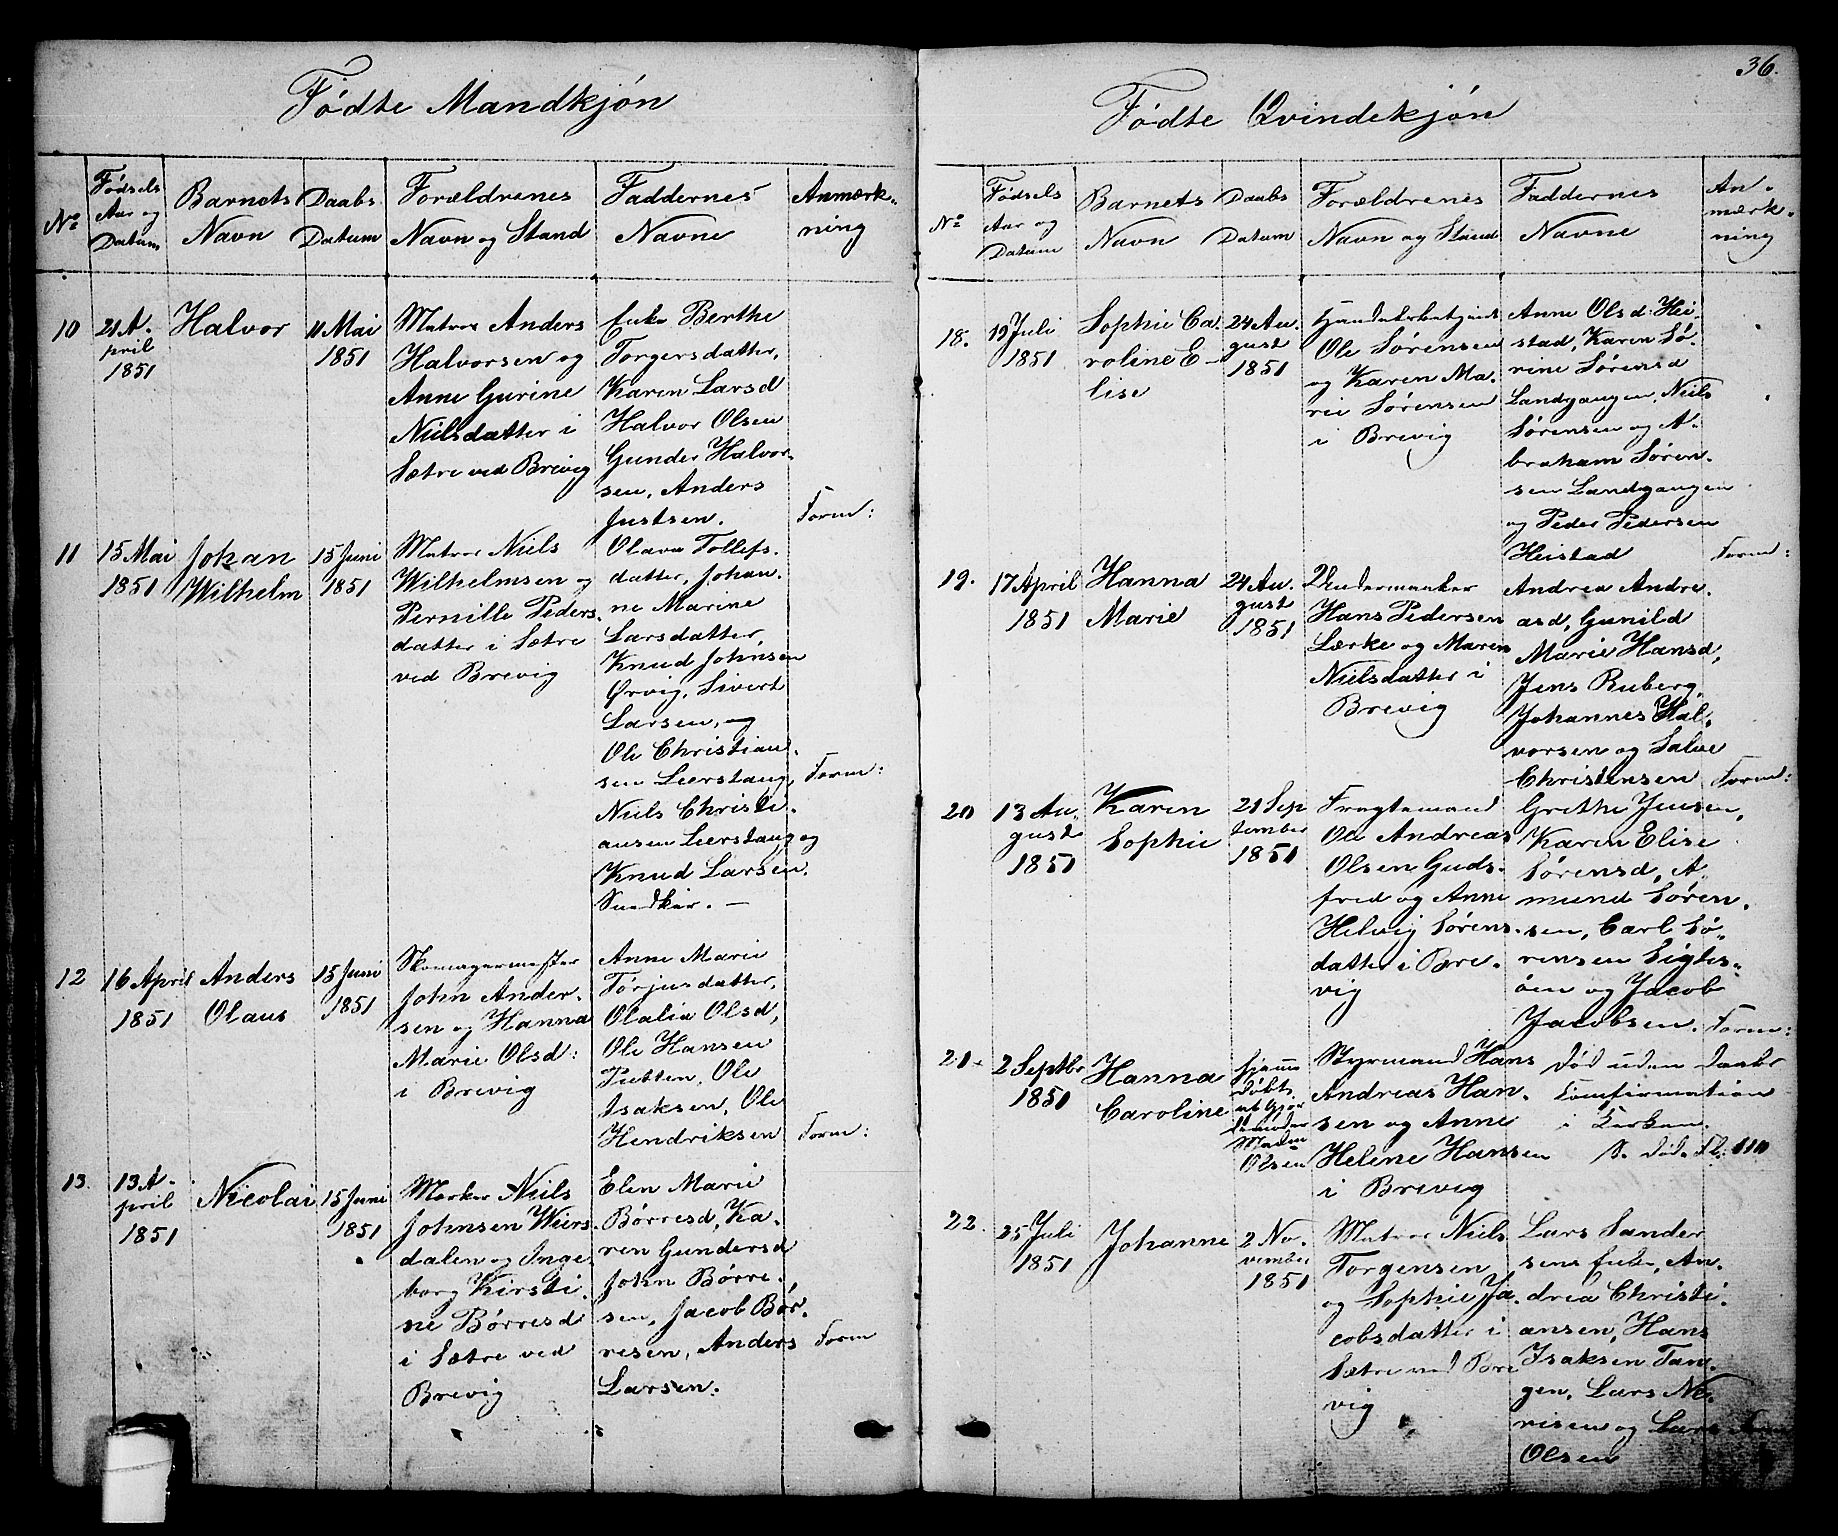 36.
Fødte Mandkjøn
No
Fødsels Aar og Datum
Barnets Navn
Daabs Datum
Forældrenes Navn og Stand
Faddernes Navne
Anmærkning
10
21 A-
pril
1851
Halvor
11 Mai
1851
Matros Anders
Halvorsen og
Anne Gurine
Nielsdatter i
Sætre ved Brevig
Enke Berthe
Torgersdatter,
Karen Larsd
Halvor Olsen
Gunder Halvor-
sen, Anders
Justsen.
Form:
11
15 Mai
1851
Johan
Wilhelm
15 Juni
1851
Matros Niels
Wilhelmsen og
Pernille Peders-
datter i Sætre
ved Brevig
Olava Tollefs-
datter, Johan-
ne Marine
Larsdatter,
Knud Johnsen
Ørvig, Sivert
Larsen, og
Ole Christian-
sen Leerstang,
Niels Christi-
ansen Leerstang og
Knud Larsen
Form:
12
16 April
1851
Anders
Olaus
15 Juni
1851
Skomagermester
John Ander-
sen og Hanna
Marie Olsd:
i Brevig
Anne Marie
Torjusdatter,
Olalia Olsd,
Ole Hansen
Ole
Isaksen, Ole
Hendriksen
Form:
13.
13 A-
pril
1851
Nicolai
15 Juni
1851
Mærker Niels
Johnsen Wiers-
dalen og Inge-
borg Kirsti-
ne Børresd
i Sætre ved
Brevig
Elen Marie
Børresd, Ka-
ren Gundersd
John Børre-
sen, Jacob Bør-
resen, Anders
Larsen.
Form
Fødte Qvindekjøn
No
Fødsels Aar og Datum
Barnets Navn
Daabs Datum
Forældrenes Navn og Stand
Faddernes Navne
An-
mærk-
ning
18.
19 Juli
1851
Sophie Ca-
roline E-
lise
24 Au-
gust
1851
Ole Sørensen
og Karen Ma-
rie Sørensen
i Brevig
Anne Olsd: Hei-
stad, Karen Sø-
rine Sørensd
Landgangen, Niels
Sørensen og A-
braham Søren-
sen Landgangen
og Peder Pedersen
Heistad
Form:
19.
17 April
1851
Hanna
Marie
24 Au-
gust
1851
Hans Pedersen
Lærke og Maren
Nielsdatter i
Brevig
Andrea Andre-
asd, Gunild
Marie Hansd,
Jens Ruberg,
Johannes Hal-
vorsen og Salve
Christensen
Form:
20
13 Au-
gust
1851
Karen
Sophie
21 Sep
tember
1851
Fragtemand
Ole Andreas
Olsen Guds-
fred og Anne
Helvig Sørens-
datter i Bre-
vig
Grethe Jensen,
Karen Elise
Sørensd, A-
mund Søren-
sen, Carl Sø-
rensen Sigtes-
øen og Jacob
Jacobsen.
Form:
21.
2 Septbr
1851
Hanna
Caroline
hjemme
døbt
af Gjor
demoder
Madm
Olsen
Styrmand Hans
Andreas Han-
sen og Anne
Helene Hansen
i Brevig
død uden Daabs
Confirmation
i Kirken.
S. død. Fl. 110
22.
25 Juli
1851
Johanne
2 No-
vember
1851
Matros Niels
Torgensen
og Sophie Ja-
cobsdatter i
Sætre ved Bre
vig
Lars Sander
sens Enke, An-
drea Christi-
ansen, Hans
Isaksen Tan-
gen, Lars Ne-
risen og Lars
Olsen